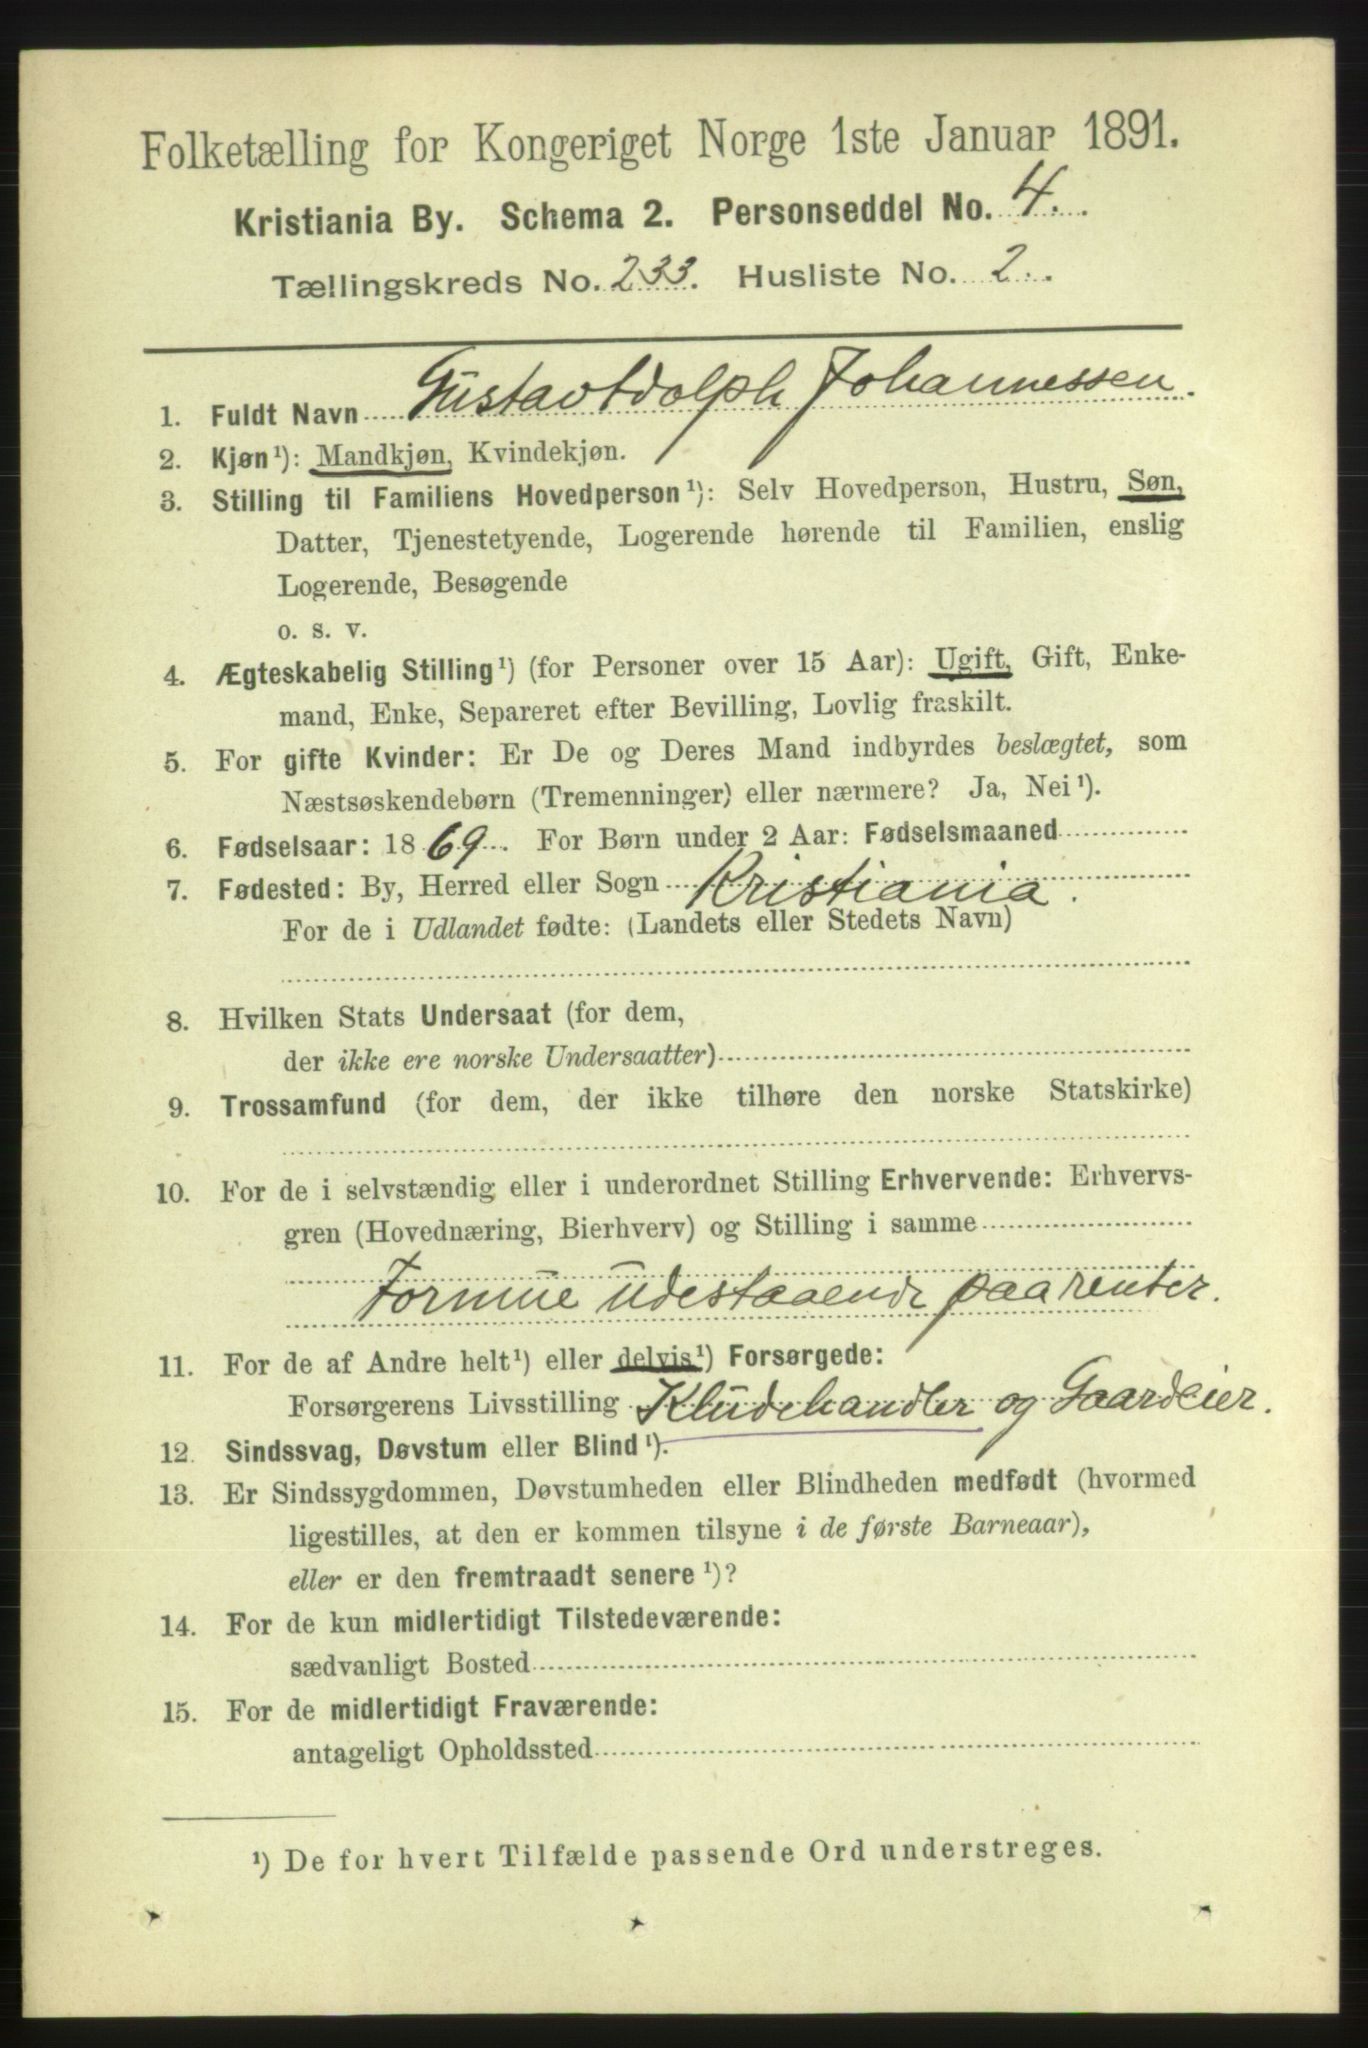 Folketælling for Kongeriget Norge 1ste Januar 1891.
Kristiania By. Schema 2. Personseddel No. 4.
Tællingskreds No. 233. Husliste No. 2.
1. Fuldt Navn Gustav Adolph Johannessen.
2. Kjøn¹): Mandkjøn, Kvindekjøn.
3. Stilling til Familiens Hovedperson¹): Selv Hovedperson, Hustru, Søn,
Datter, Tjenestetyende, Logerende hørende til Familien, enslig
Logerende, Besøgende
o. s. v.
4. Ægteskabelig Stilling¹) (for Personer over 15 Aar): Ugift, Gift, Enke-
mand, Enke, Separeret efter Bevilling, Lovlig fraskilt.
5. For gifte Kvinder: Er De og Deres Mand indbyrdes beslægtet, som
Næstsøskendebørn (Tremenninger) eller nærmere? Ja, Nei¹).
6. Fødselsaar: 1869. For Børn under 2 Aar: Fødselsmaaned
7. Fødested: By, Herred eller Sogn Kristiania.
For de i Udlandet fødte: (Landets eller Stedets Navn)
8. Hvilken Stats Undersaat (for dem,
der ikke ere norske Undersaatter)
9. Trossamfund (for dem, der ikke tilhøre den norske Statskirke)
10. For de i selvstændig eller i underordnet Stilling Erhvervende: Erhvervs-
gren (Hovednæring, Bierhverv) og Stilling i samme
Formue udestaaende paa renter.
11. For de af Andre helt¹) eller delvis¹) Forsørgede:
Forsørgerens Livsstilling Kludehandler og Gaardeier.
12. Sindssvag, Døvstum eller Blind¹).
13. Er Sindssygdommen, Døvstumheden eller Blindheden medfødt (hvormed
ligestilles, at den er kommen tilsyne i de første Barneaar),
eller er den fremtraadt senere¹)?
14. For de kun midlertidigt Tilstedeværende:
sædvanligt Bosted
15. For de midlertidigt Fraværende:
antageligt Opholdssted
¹) De for hvert Tilfælde passende Ord understreges.